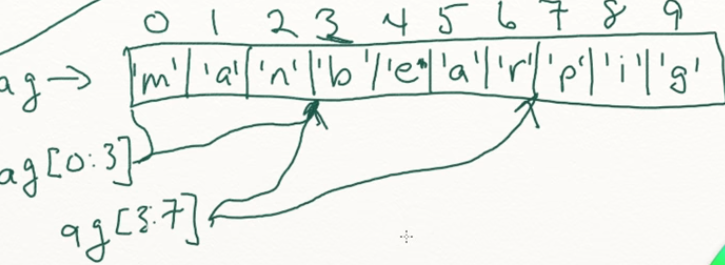 0 1 2 3 4 5 6 7 8 9
ag → 'm' 'a' 'n' 'b' 'e' 'a' 'r' 'p' 'i' 'g'
ag[0:3]
ag[3:7]